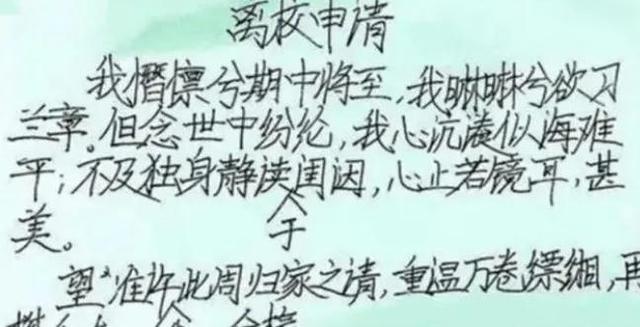 离校申请
我憯懔兮期中将至,我啉啉兮欲习
兰章。但念世中纷纶,我心沉凑似海难
平;不及独身静读于闺因,心止若镜耳,甚
美。
望准许此周归家之请,重温万卷缥缃,再